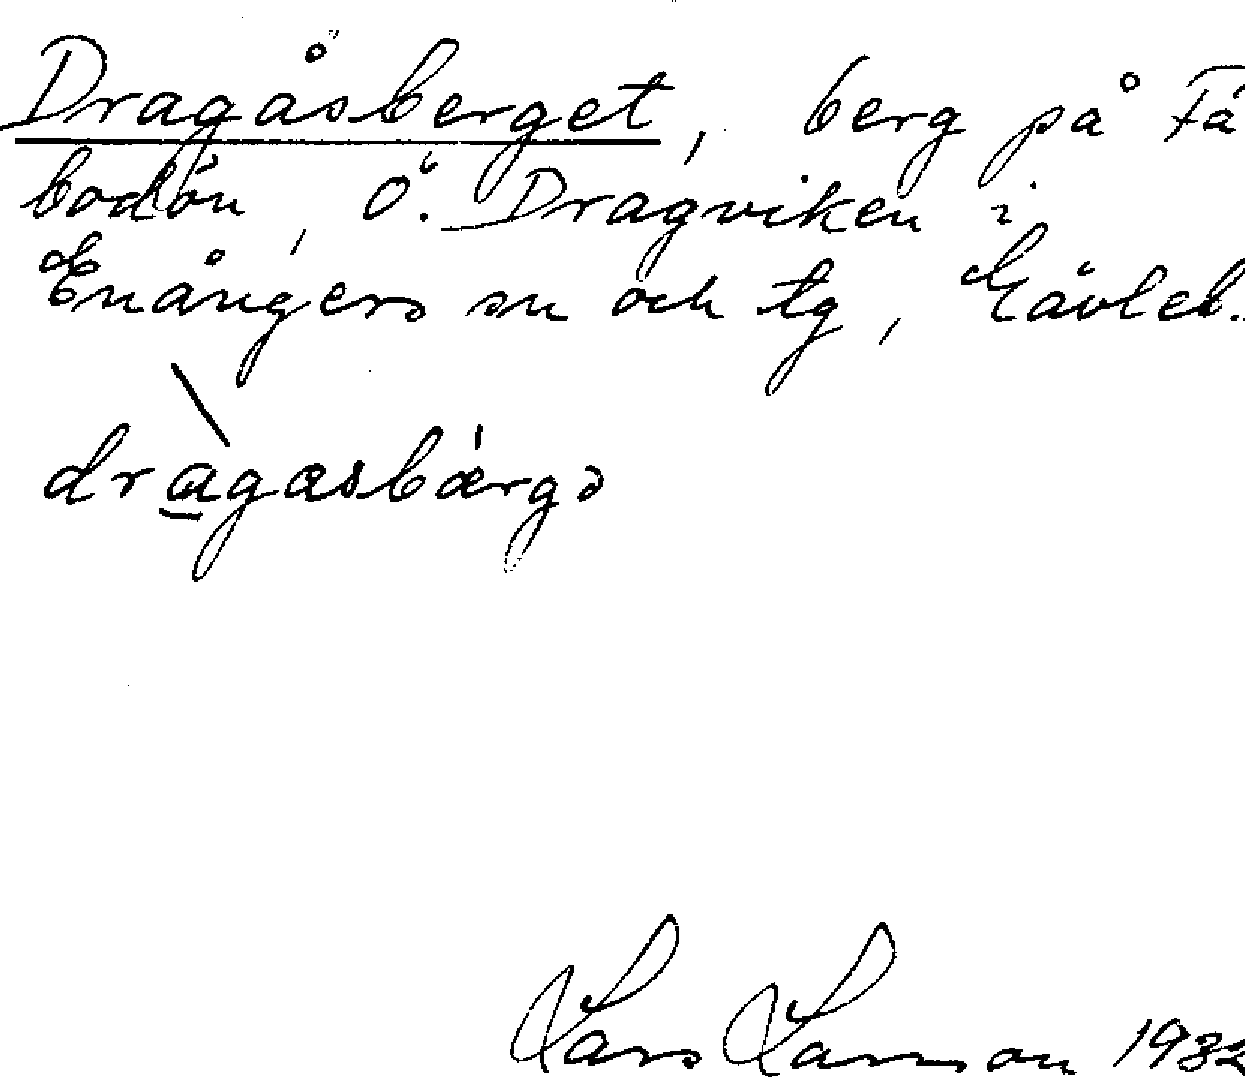 Dragåsberget, berg på Fä
bodön, Ö. Dragviken i
Enångers sn och tg, Gävleb.
dragasbærgə
Lars Larsson 1982